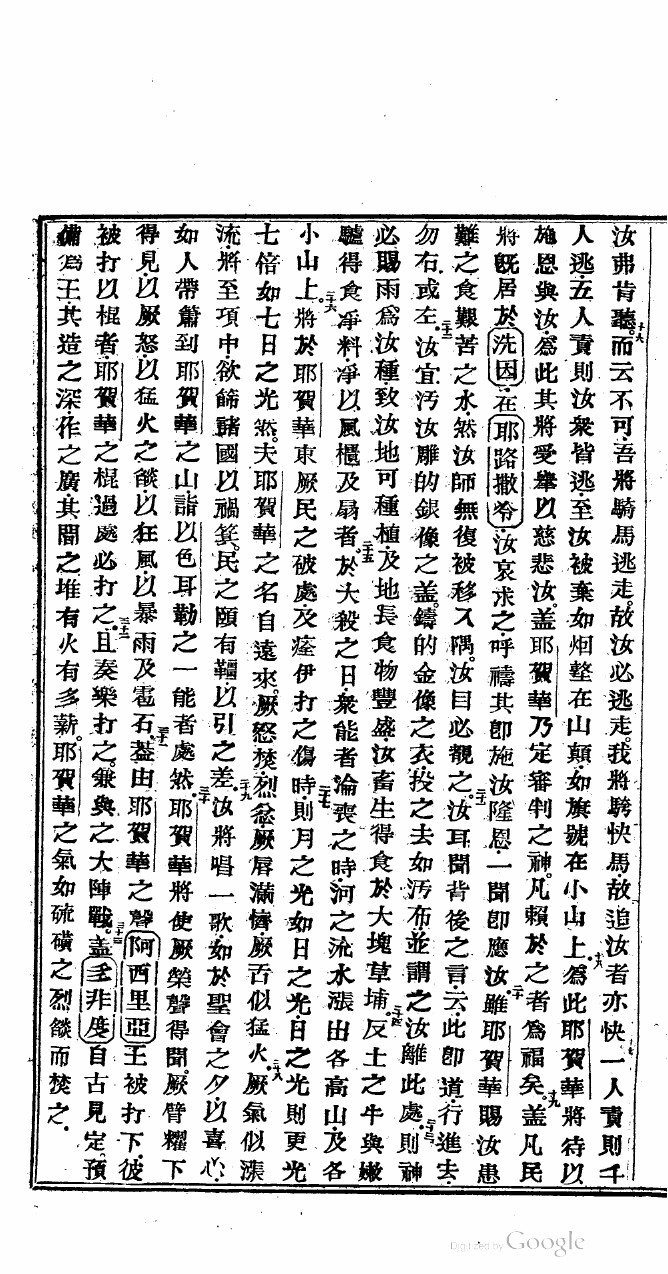 汝弗肯聽而云不可吾將騎馬逃走故汝必逃走我將騎快馬故追汝者亦快一人責則千
人逃五人責則汝衆皆逃至汝被棄如桅整在山顛如旗號在小山上爲此耶賀華將待以
施恩與汝爲此其將受舉以慈悲汝蓋耶賀華乃定審判之神凡賴於之者爲福矣蓋凡民
將旣居於洗因在耶路撒冷汝哀求之呼禱其卽施汝隆恩一聞卽應汝雖耶賀華賜汝患
難之食艱苦之水然汝師無復被移入隅汝目必覩之汝耳聞背後之言云此卽道行進去
勿右或左汝宜汚汝雕的銀像之蓋鑄的金像之衣投之去如汚布並謂之汝離此處則神
必賜雨爲汝種致汝地可種植及地長食物豐盛汝畜生得食於大塊草埔反土之牛與嫩
驢得食凈料凈以風櫃及扇者於大殺之日衆能者淪喪之時河之流水漲出各高山及各
小山上將於耶賀華東厥民之破處及瘞伊打之傷時則月之光如日之光日之光則更光
七倍如七日之光然夫耶賀華之名自遠來厥怒焚烈忿厥唇滿懠厥舌似猛火厥氣似漲
流將至項中欲篩諸國以禍箕民之頤有韁以引之差汝將唱一歌如於聖會之夕以喜心
如人帶簫到耶賀華之山詣以色耳勒之一能者處然耶賀華將使厥榮聲得聞厥臂耀下
得見以厥怒以猛火之燄以狂風以暴雨及雹石蓋由耶賀華之聲阿西里亞王被打下彼
被打以棍者耶賀華之棍過處必打之且奏樂打之兼與之大陣戰蓋多非度自古見定預
備爲王其造之深作之廣其閤之堆有火有多薪耶賀華之氣如硫磺之烈燄而焚之
Digitized by Google